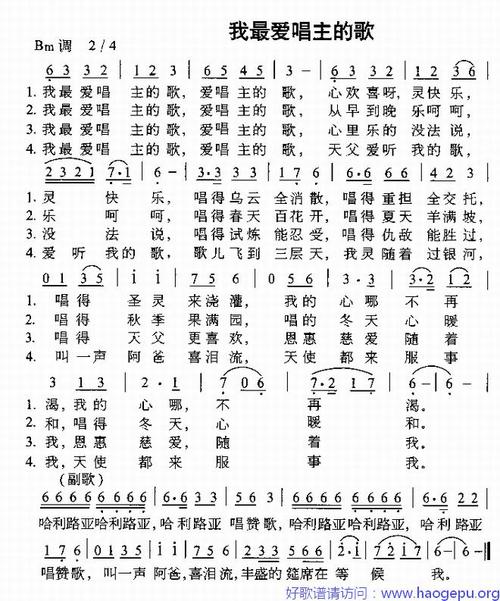 我最爱唱主的歌
Bm 调 2/4
6 3 3 2 | 1 2 3 | 6 5 4 5 | 3 - | 6 3 3 2 | 1 2 3 6 |
1. 我最爱唱 主的歌，爱唱主的 歌，心欢喜呀，灵快乐，
2. 我最爱唱 主的歌，爱唱主的 歌，从早到晚 乐呵呵，
3. 我最爱唱 主的歌，爱唱主的 歌，心里乐的 没法说，
4. 我最爱唱 主的歌，爱唱主的 歌，天父爱听 我的歌，
2 3 2 1 7·1 | 6 - | 3·3 3 3 | 2 1 2 3 | 1 1 7 6 | 5 6 3 |
1. 灵 快 乐，唱得乌云 全消散，唱得重担 全交托，
2. 乐 呵 呵，唱得春天 百花开，唱得夏天 羊满坡，
3. 没 法 说，唱得试炼 能忍受，唱得仇敌 能胜过，
4. 爱 听 我的 歌，歌儿飞到 三层天，我灵随着 过银河，
0 1 3 5 | 1 1 | 7 5 6 | 0 5 6 | 3 3 | 3·2 1 2 |
1. 唱得 圣灵 来浇灌，我的 心哪 不再
2. 唱得 秋季 果满园，唱的 冬天 心暖
3. 唱得 天父 更喜欢，恩惠 慈爱 随着
4. 叫一声 阿爸 喜泪流，天使 都来 服事
3 1 3 | 2·1 | 7 0 6 | 7·2 1 7 | 6 - | 6 - |
1. 渴，我的 心哪，不 再 渴。
2. 和，唱得 冬天，心 暖 和。
3. 我，恩惠 慈爱，随 着 我。
4. 我，天使 都来 服 事 我。
(副歌)
6 6 6 6 6 6 6 6 | 6·6 3 3 | 5 5 3 | 6 6 6 6 6 6 6 6 | 6·6 2 2 |
哈利路亚哈利路亚，哈利路亚 唱赞歌，哈利路亚哈利路亚，哈利路亚
1 7 6 | 0 1 3 5 | 1 1 | 7 5 6 | 2 3 3 | 5 5 6 | 2·1 | 7 2 1 7 | 6 - |
唱赞歌，叫一声 阿爸，喜泪流，丰盛的 筵席在 等 候 我。
好歌谱请访问：www.haogepu.org